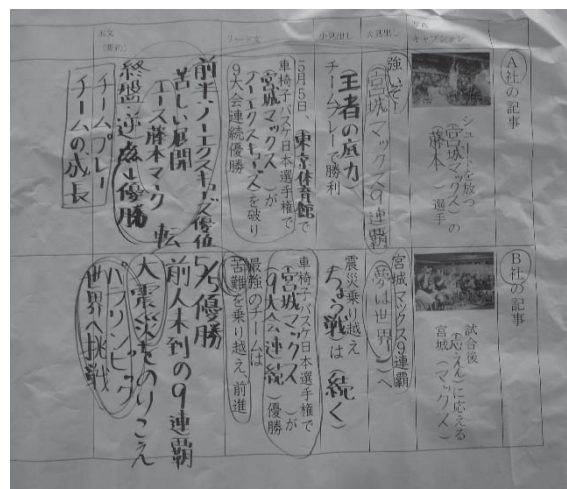 写真
キャプション
大見出し
小見出し
リード文
本文
(要約)
A社の記事
シュートを放つ
(宮城マックス)の
(藤本)選手
強いぞ!
宮城マックス9連覇
王者の底力
チームプレーで勝利
5月5日、東京体育館で
車椅子バスケ日本選手権で
宮城マックスが
ノーエクスキューズを破り
9大会連続優勝
前半ノーエクスキューズ優位
苦しい展開
エース藤本マーク
終盤・逆転優勝
チームプレー
チームの成長
B社の記事
試合後
(おうえん)に応える
宮城(マックス)
宮城マックス9連覇
(夢は世界)へ
震災乗り越え
ちょう戦は(続く)
車椅子バスケ日本選手権で
(宮城マックス)が
(9大会連続)優勝
最強のチームは
苦難を乗り越え、前進
5/5優勝
前人未到の9連覇
大震災をのりこえ
パラリンピック
世界へ挑戦